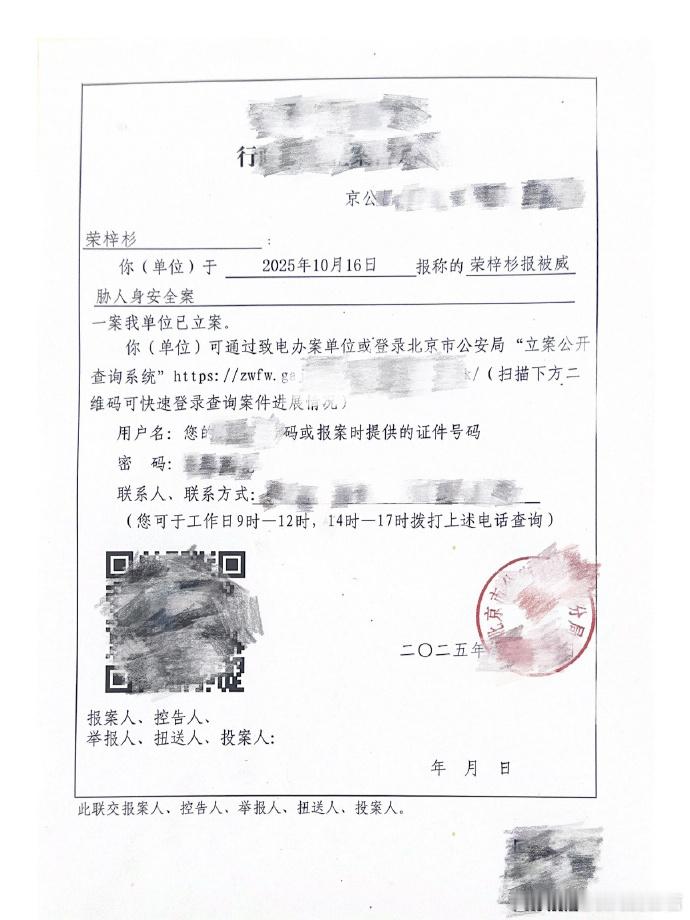 行
京公
荣梓杉:
你(单位)于 2025年10月16日 报称的 荣梓杉报被威
胁人身安全案
一案我单位已立案。
你(单位)可通过致电办案单位或登录北京市公安局“立案公开
查询系统”https://zwfw.ga k/(扫描下方二
维码可快速登录查询案件进展情况)
用户名:您的 码或报案时提供的证件号码
密 码:
联系人、联系方式:
(您可于工作日9时—12时,14时—17时拨打上述电话查询)
北京市 分局
二〇二五年
报案人、控告人、
举报人、扭送人、投案人:
年 月 日
此联交报案人、控告人、举报人、扭送人、投案人。